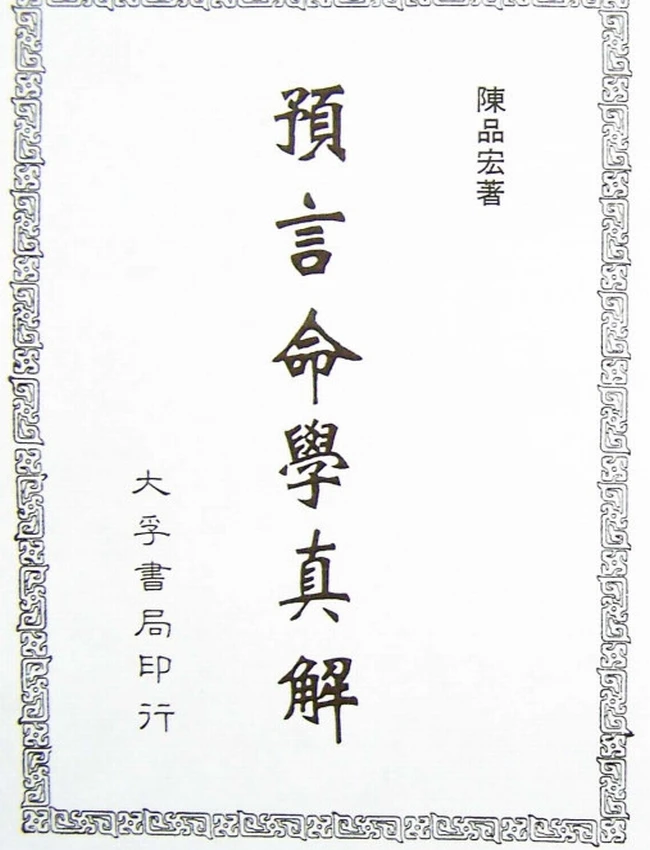 陳品宏著
預言命學真解
大孚書局印行